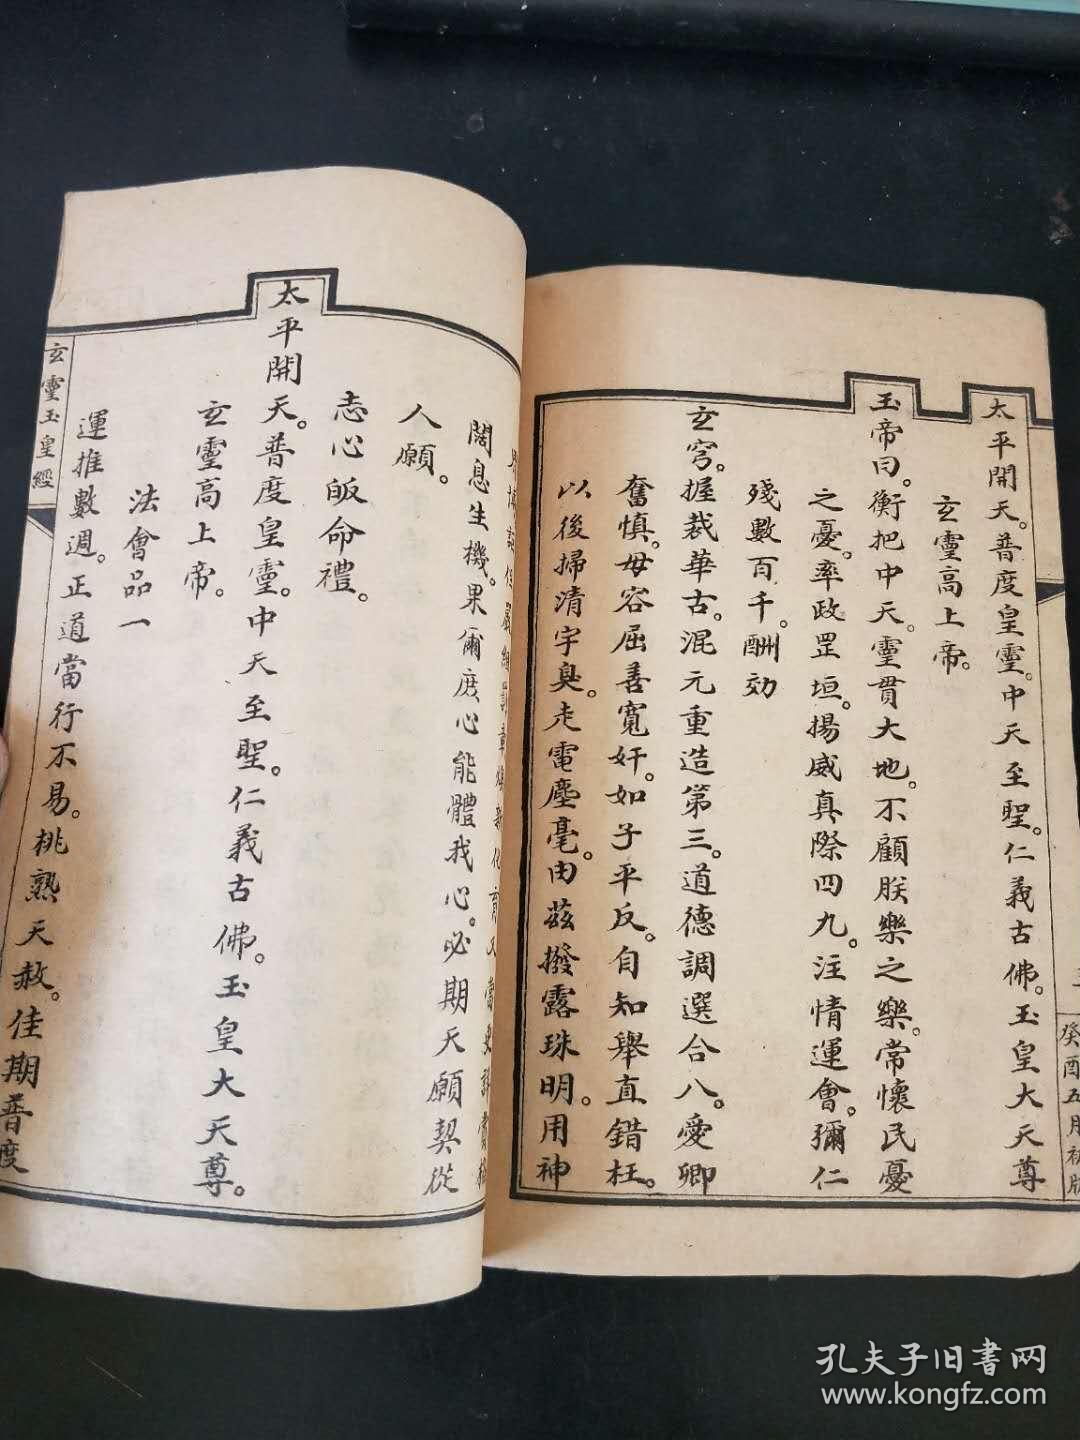 太平開天。普度皇靈。中天至聖。仁義古佛。玉皇大天尊
玄靈高上帝。
玉帝曰。衡把中天。靈貫大地。不顧朕樂之樂。常懷民憂
之憂。率政罡垣。揚威真際四九。注情運會。彌仁
殘數百千。酬効
玄穹。握裁華古。混元重造第三。道德調選合八。愛卿
奮慎。毋容屈善寬奸。如子平反。自知舉直錯枉。
以後掃清宇臭。走電塵毫。由茲撥露珠明。用神
癸酉五月初版
闊息生機。果爾庶心能體我心。必期天願契從
人願。
志心皈命禮。
太平開天。普度皇靈。中天至聖。仁義古佛。玉皇大天尊。
玄靈高上帝。
法會品一
運推數週。正道當行不易。桃熟天赦。佳期普度
玄靈玉皇經
孔夫子旧书网
www.kongfz.com